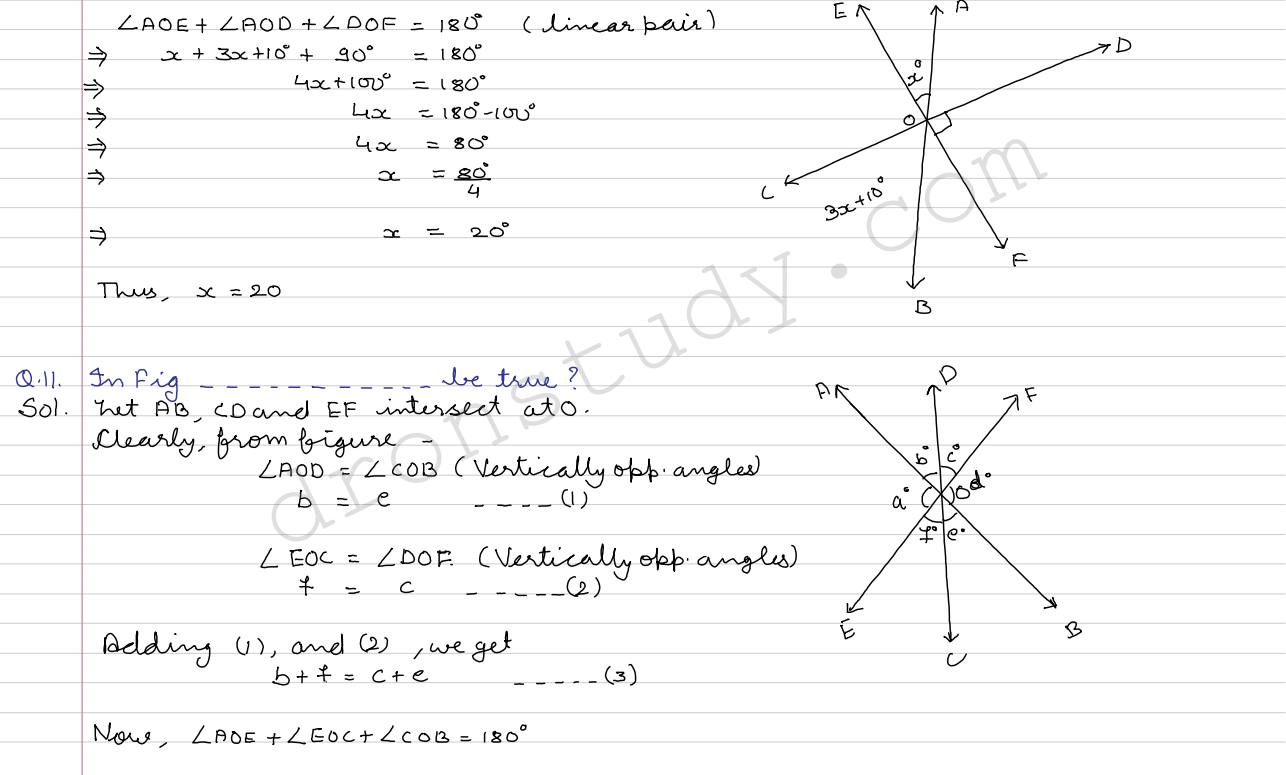 ∠AOE + ∠AOD + ∠DOF = 180° (linear pair)
⇒ x + 3x+10° + 90° = 180°
⇒ 4x+100° = 180°
⇒ 4x = 180°-100°
⇒ 4x = 80°
⇒ x = 80°/4
⇒ x = 20°
Thus, x = 20
E
A
D
x°
O
C
3x+10°
F
B
Q.11. In Fig ____________ be true?
Sol. Let AB, CD and EF intersect at O.
Clearly, from figure -
∠AOD = ∠COB (Vertically opp. angles)
b = e ----(1)
∠EOC = ∠DOF. (Vertically opp. angles)
f = c -----(2)
Adding (1), and (2), we get
b+f = c+e -----(3)
Now, ∠AOE + ∠EOC + ∠COB = 180°
A
D
F
b° c°
a° O d°
f° e°
E
C
B
dronstudy.com